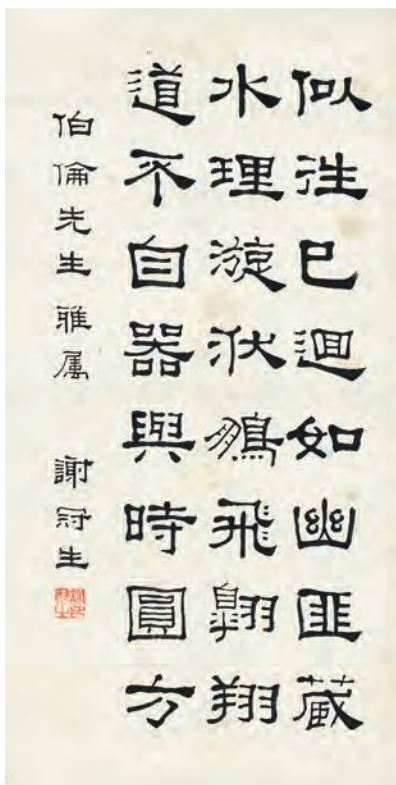 似往已迴如幽匪藏
水理漩洑鵬飛翱翔
道不自器與時圓方
伯倫先生雅属 謝冠生